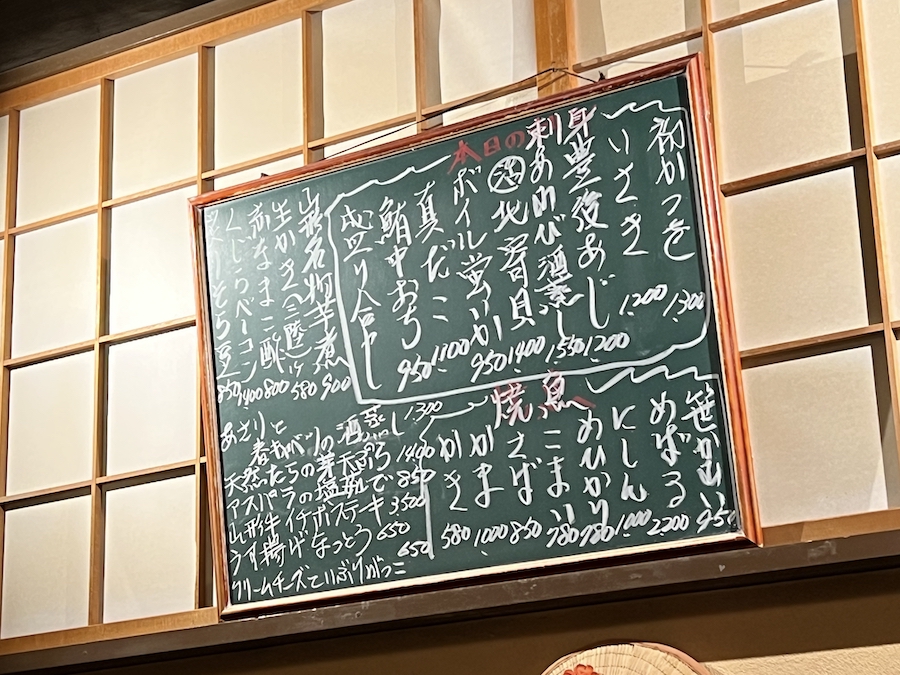 本日の刺身
初かつを 1,300
いさき 1,200
豊後あじ 1,200
あわび酒蒸し 1,550
活北寄貝 1,400
ボイル蛍いか 950
真だこ 1,100
鮪中おち 950
盛り合せ
焼魚
笹かれい 950
めばる 2,200
にしん 1,000
めひかり 780
こまい 780
さばかま 850
かま 1,000
かき 580
山形名物芋煮 900
生かき(三陸)1ヶ 580
赤なまこ酢 800
くじらベーコン 1,400
そら豆 850
あさりと
春キャベツの酒蒸し 1,300
天然たらの芽天ぷら 1,400
アスパラの塩麹で 850
山形牛イチボステーキ 3,500
うす揚げなっとう 650
クリームチーズといぶりがっこ 650